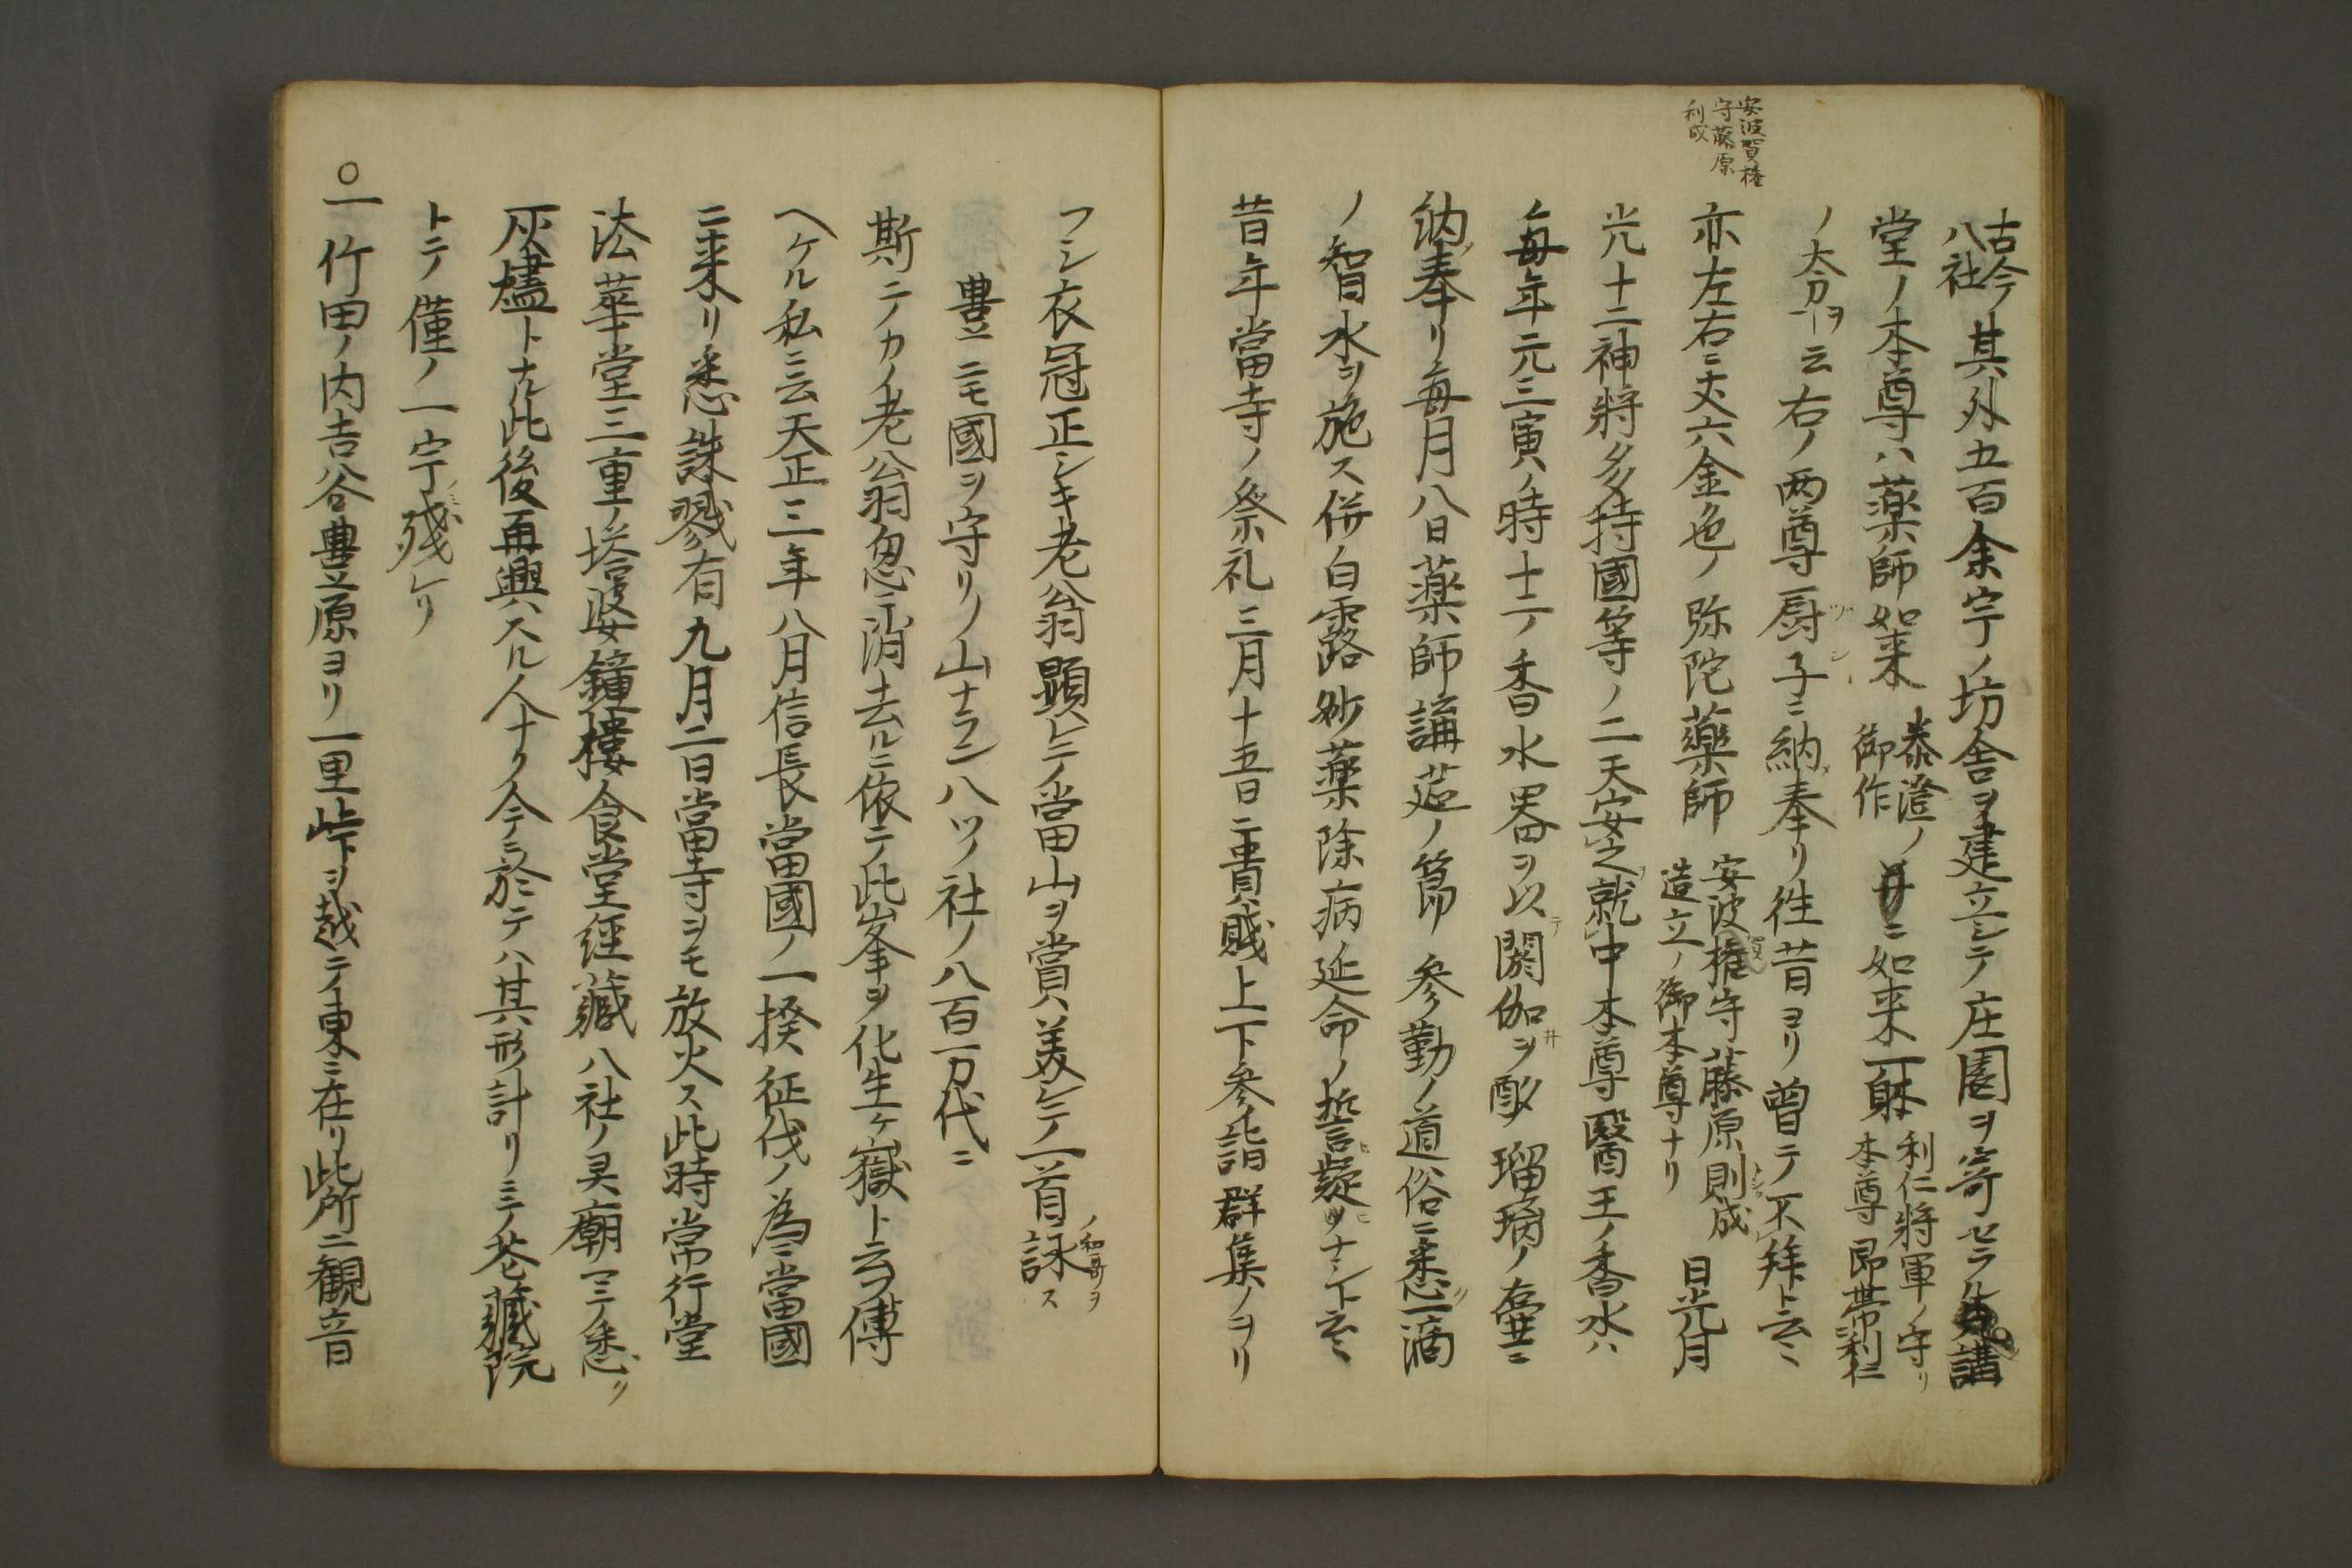 安波賀権
守藤原
利成
古今
八社
其外五百余宇ノ坊舎ヲ建立シテ庄園ヲ寄セラル講
堂ノ本尊ハ薬師如来
泰澄ノ
御作
并ニ如来一躰
利仁将軍ノ守リ
本尊昂帯利仁
ノ太刀ヲ云右ノ両尊厨子ニ納奉リ徃昔ヨリ曽テ不拝ト云々
亦左右ニ丈六金色ノ弥陀薬師
安波賀権守藤原則成
造立ノ御本尊ナリ
日光月
光十二神将多持國等ノ二天安之就中本尊醫王ノ香水ハ
毎年元三寅ノ時十二ノ香水器ヲ以テ閼伽井ヲ酌瑠璃ノ壺ニ
納奉リ毎月八日薬師講莚ノ節参勤ノ道俗ニ悉一滴
ノ智水ヲ施ス併白露妙薬除病延命ノ誓ヒ疑ヲナシト云々
昔年當寺ノ祭礼三月十五日ニ貴賎上下参詣群集ノヨリ
フシ衣冠正シキ老翁顕レテ當山ヲ賞美シテ一首ノ和哥ヲ詠ス
豊ニモ國ヲ守リノ山ナラン八ツノ社ノ八百万代ニ
斯テカノ老翁忽ニ消去ルニ依テ此峯ヲ化生ヶ嶽ト云フ傳
ヘケル私ニ云天正三年八月信長當國ノ一揆征伐ノ為ニ當國
ニ来リ悉誅戮有九月二日當寺ヲモ放火ス此時常行堂
法華堂三重ノ塔婆鐘樓食堂経藏八社ノ霊廟マテ悉ク
灰燼トナル此後再興スル人ナク今ニ於テハ其形計リニテ花藏院
トテ僅ノ一宇残ケリ
○一竹田ノ内吉谷豊原ヨリ一里峠ヲ越テ東ニ在リ此所ニ観音